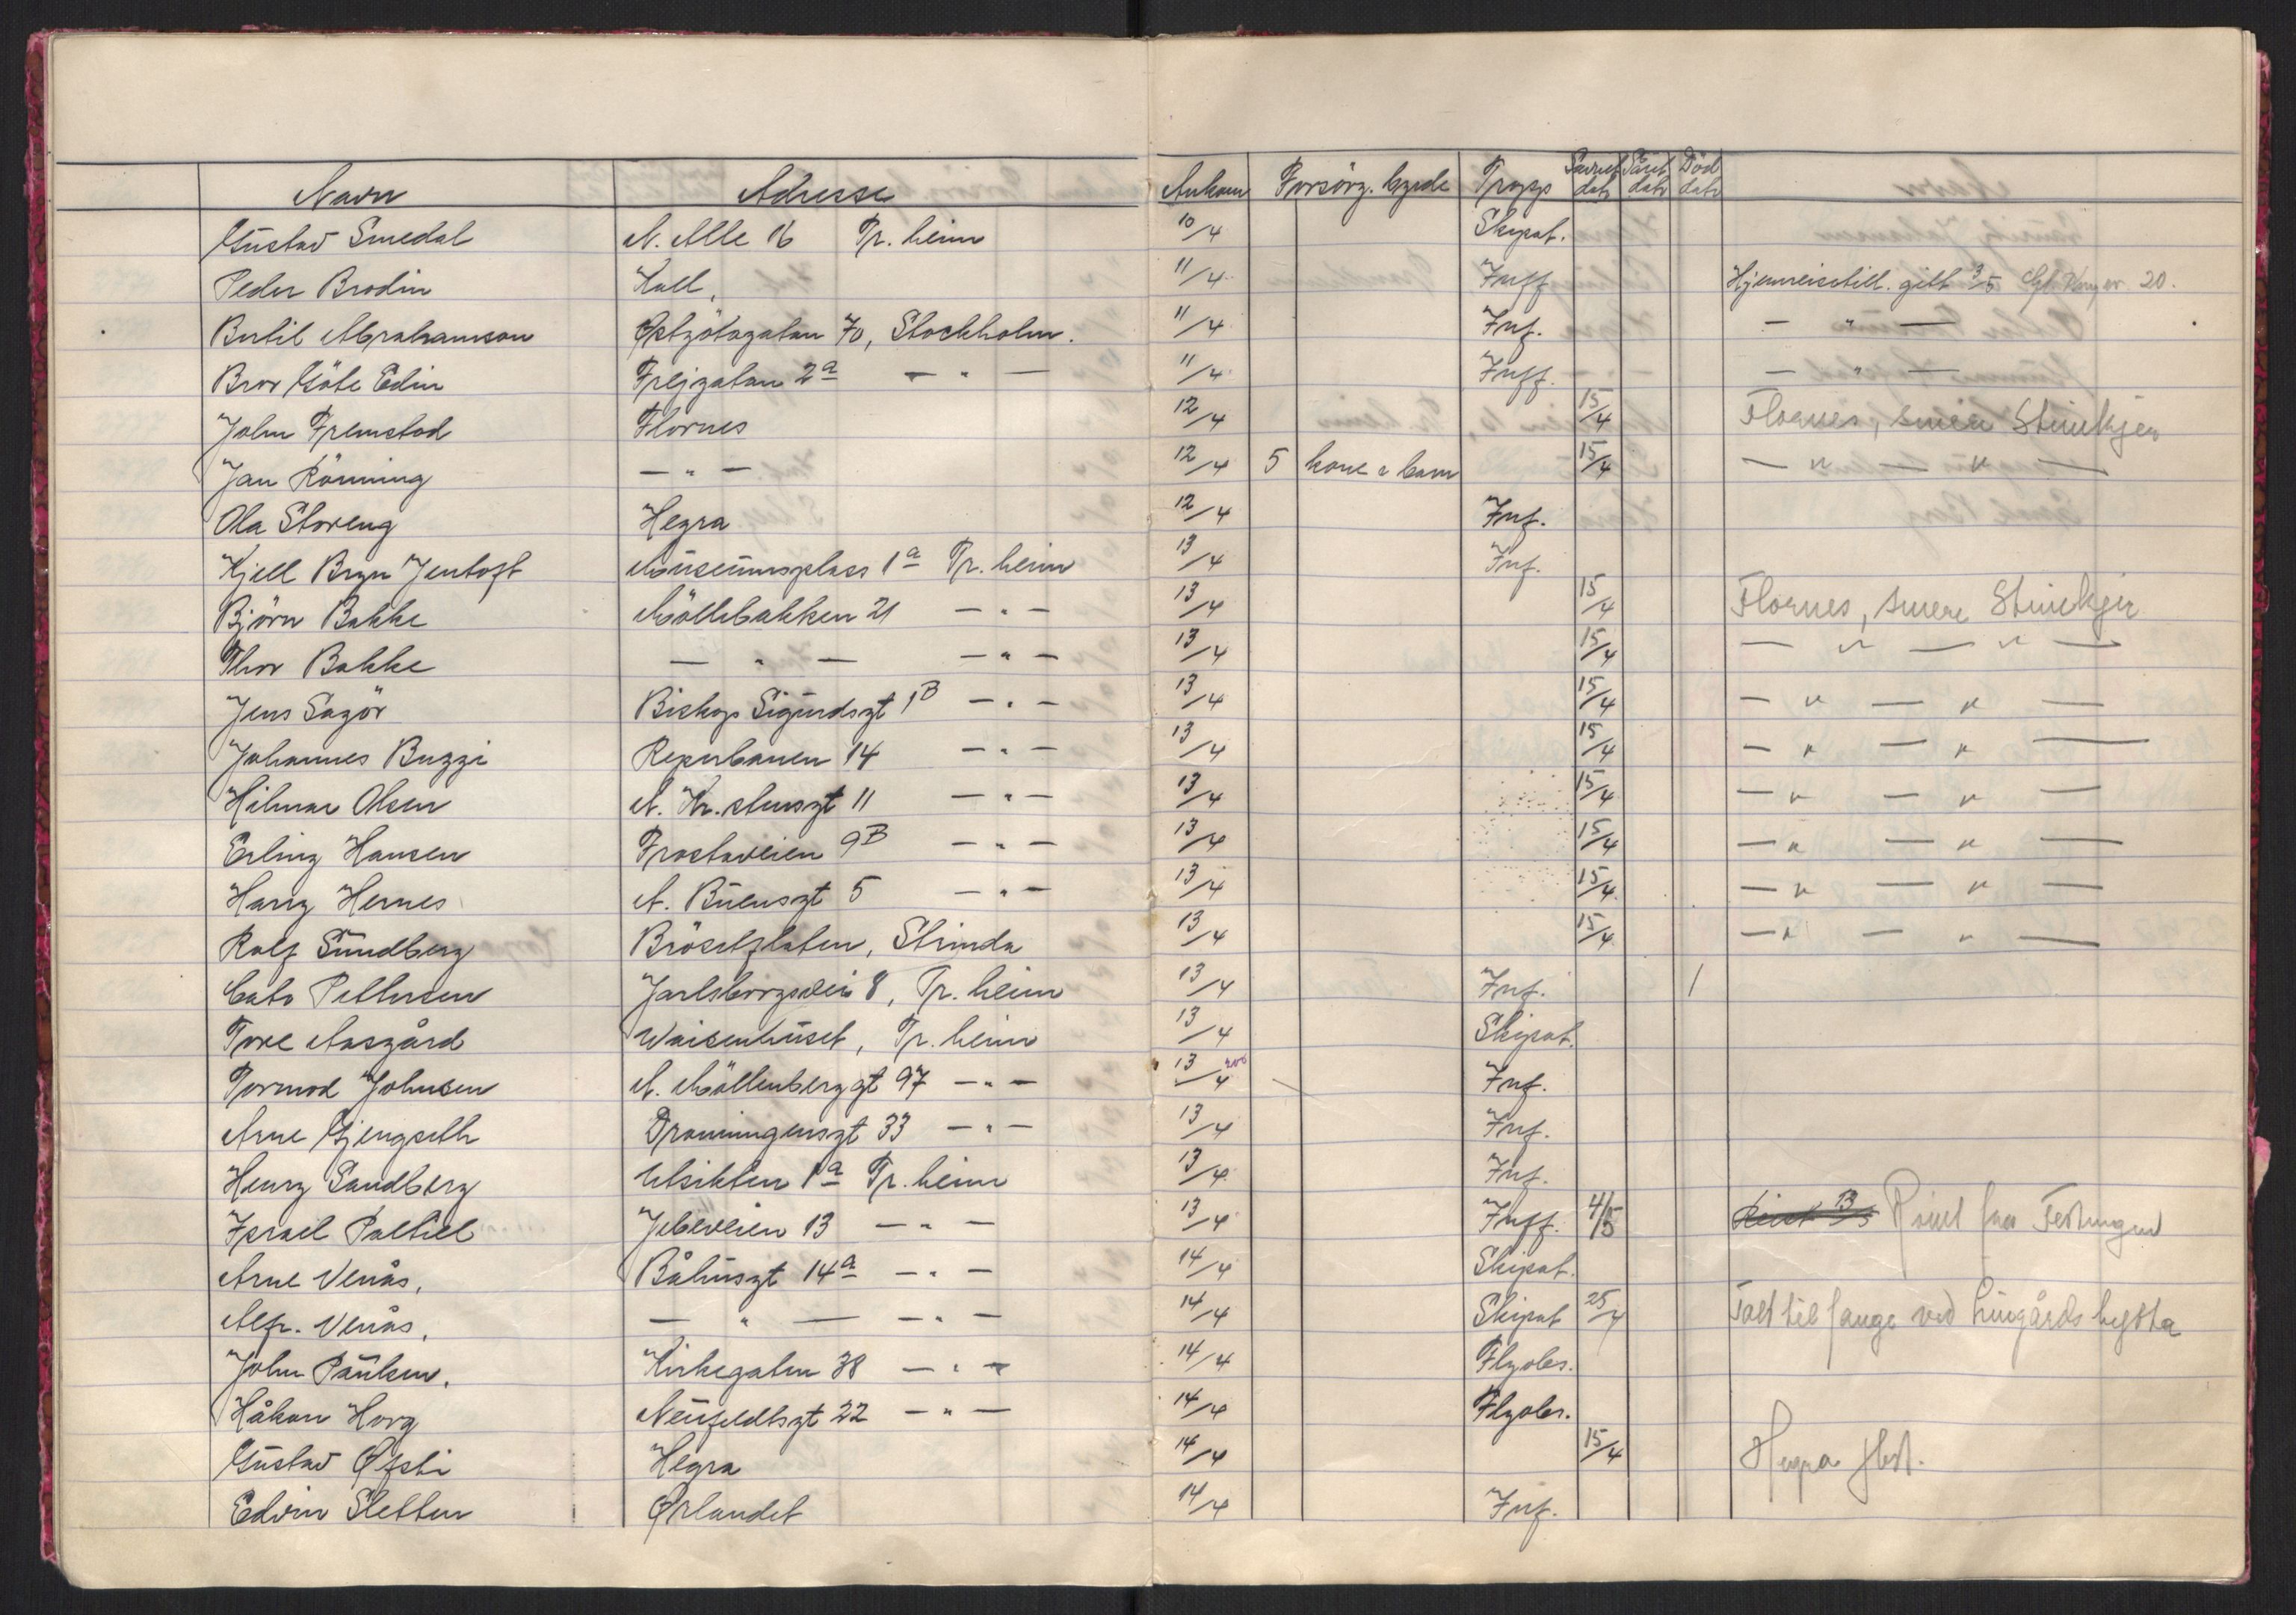 Navn Adresse Ankom Forsörg. byrde Tropp Savnet dato Såret dato Död dato
Gustav Smedal N. Alle 16 Tr. heim 10/4 Skipat.
Peder Brodin Kall, 11/4 Inff Hjemreisetill. gitt 3/5 20.
Bertil Abrahamson Östgötagatan 70, Stockholm. 11/4 Inf. — " —
Bror Göte Edin Frejgatan 2a — " — 11/4 Inff. — " —
John Fremstad Flornes 12/4 15/4 Flornes, senere Steinkjer
Jan Rönning — " — 12/4 5 kone & barn 15/4 — " — " —
Ola Storeng Hegra 12/4 Inf.
Kjell Bryn Jentoft Museumsplass 1a Tr. heim 13/4 Inf.
Björn Bakke Möllebakken 21 — " — 13/4 15/4 Flornes, senere Steinkjer
Thor Bakke — " — — " — 13/4 15/4 — " — " —
Jens Sagör Biskop Sigurdsgt 1B — " — 13/4 15/4 — " — " —
Johannes Buzzi Reperbanen 14 — " — 13/4 15/4 — " — " —
Hilmar Olsen N. Kr. 11 — " — 13/4 15/4 — " — " —
Erling Hansen Frostaveien 9B — " — 13/4 15/4 — " — " —
Harry Hernes A. Buensgt 5 — " — 13/4 15/4 — " — " —
Ralf Sundberg Brösetflaten, Strinda 13/4 15/4 — " — " —
Cato Pettersen Jarlsborgsvei 8, Tr. heim 13/4 Inf. /
Tore Aasgård Waisenhuset, Tr. heim 13/4 Skipat.
Tormod Johnsen N. Möllenberggt 97 — " — 13/4 Inf.
Arne Gjengseth Dronningensgt 33 — " — 13/4 Inf.
Henry Sandberg Utsikten 1a Tr. heim 13/4 Inf.
Israel Paltiel Jebeveien 13 — " — 13/4 Inff. 4/5 Reist fra Festningen
Arne Venås, Båhusgt 14a — " — 14/4 Skipat.
Alfr. Venås, — " — — " — 14/4 Skipat 25/4 Tatt til fange ved Lingårds hytta
John Paulsen, Kirkegaten 38 — " — 14/4 Flyobs.
Håkon Horg Neufeldtsgt 22 — " — 14/4 Flyobs.
Gustav Øfsti Hegra 14/4 15/4 Hegra fest.
Edvin Sletten Ørlandet 14/4 Inf.